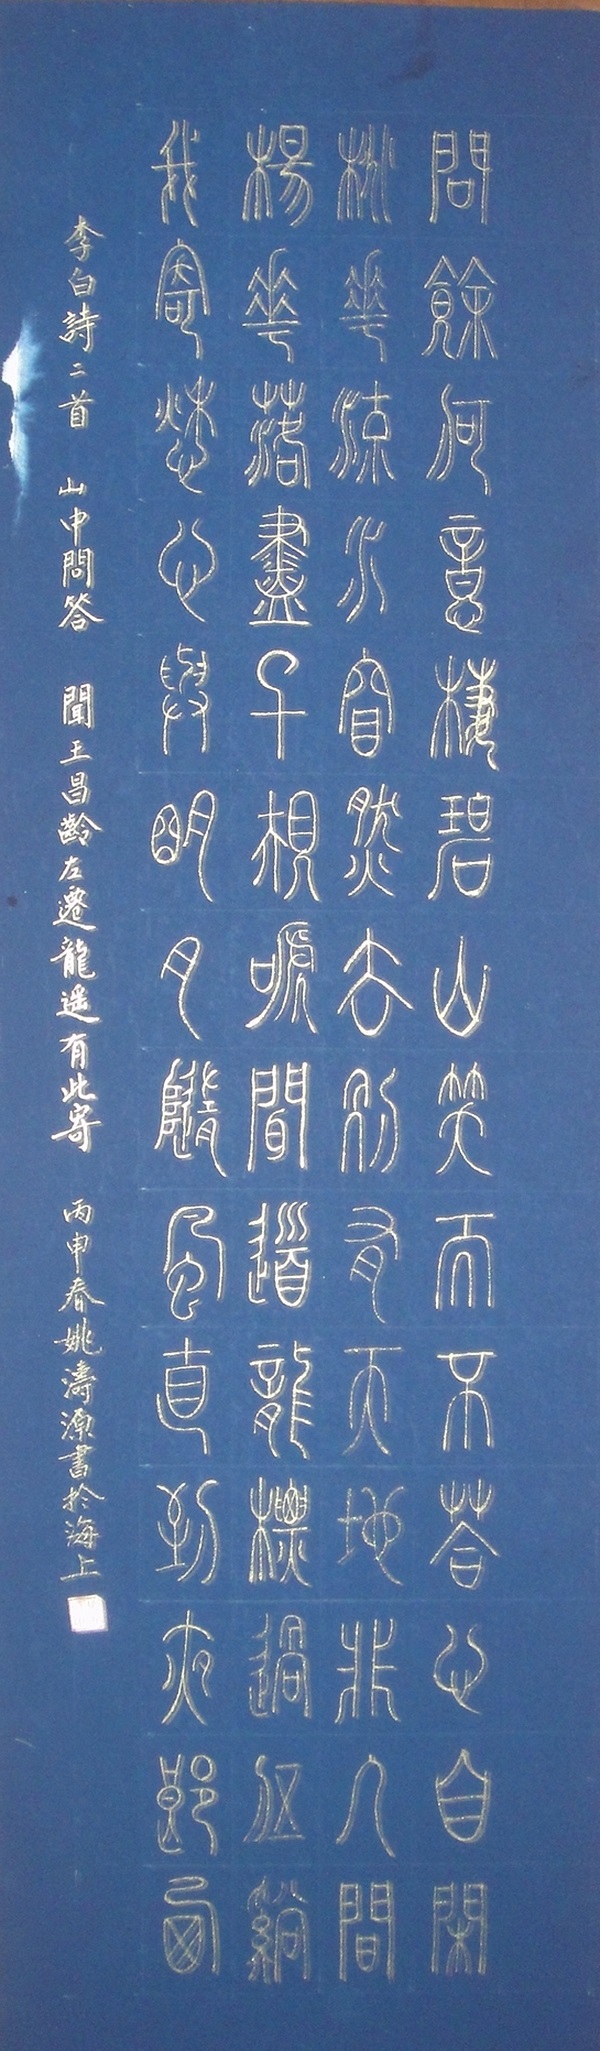 問餘何意棲碧山笑而不荅心自閑
桃華流水窅然去別有天地非人間
楊華落盡子規啼聞道龍標過五谿
我寄愁心與明月隨風直到夜郎西
李白詩二首 山中問答 聞王昌齡左遷龍遥有此寄 丙申春姚濤源書於海上